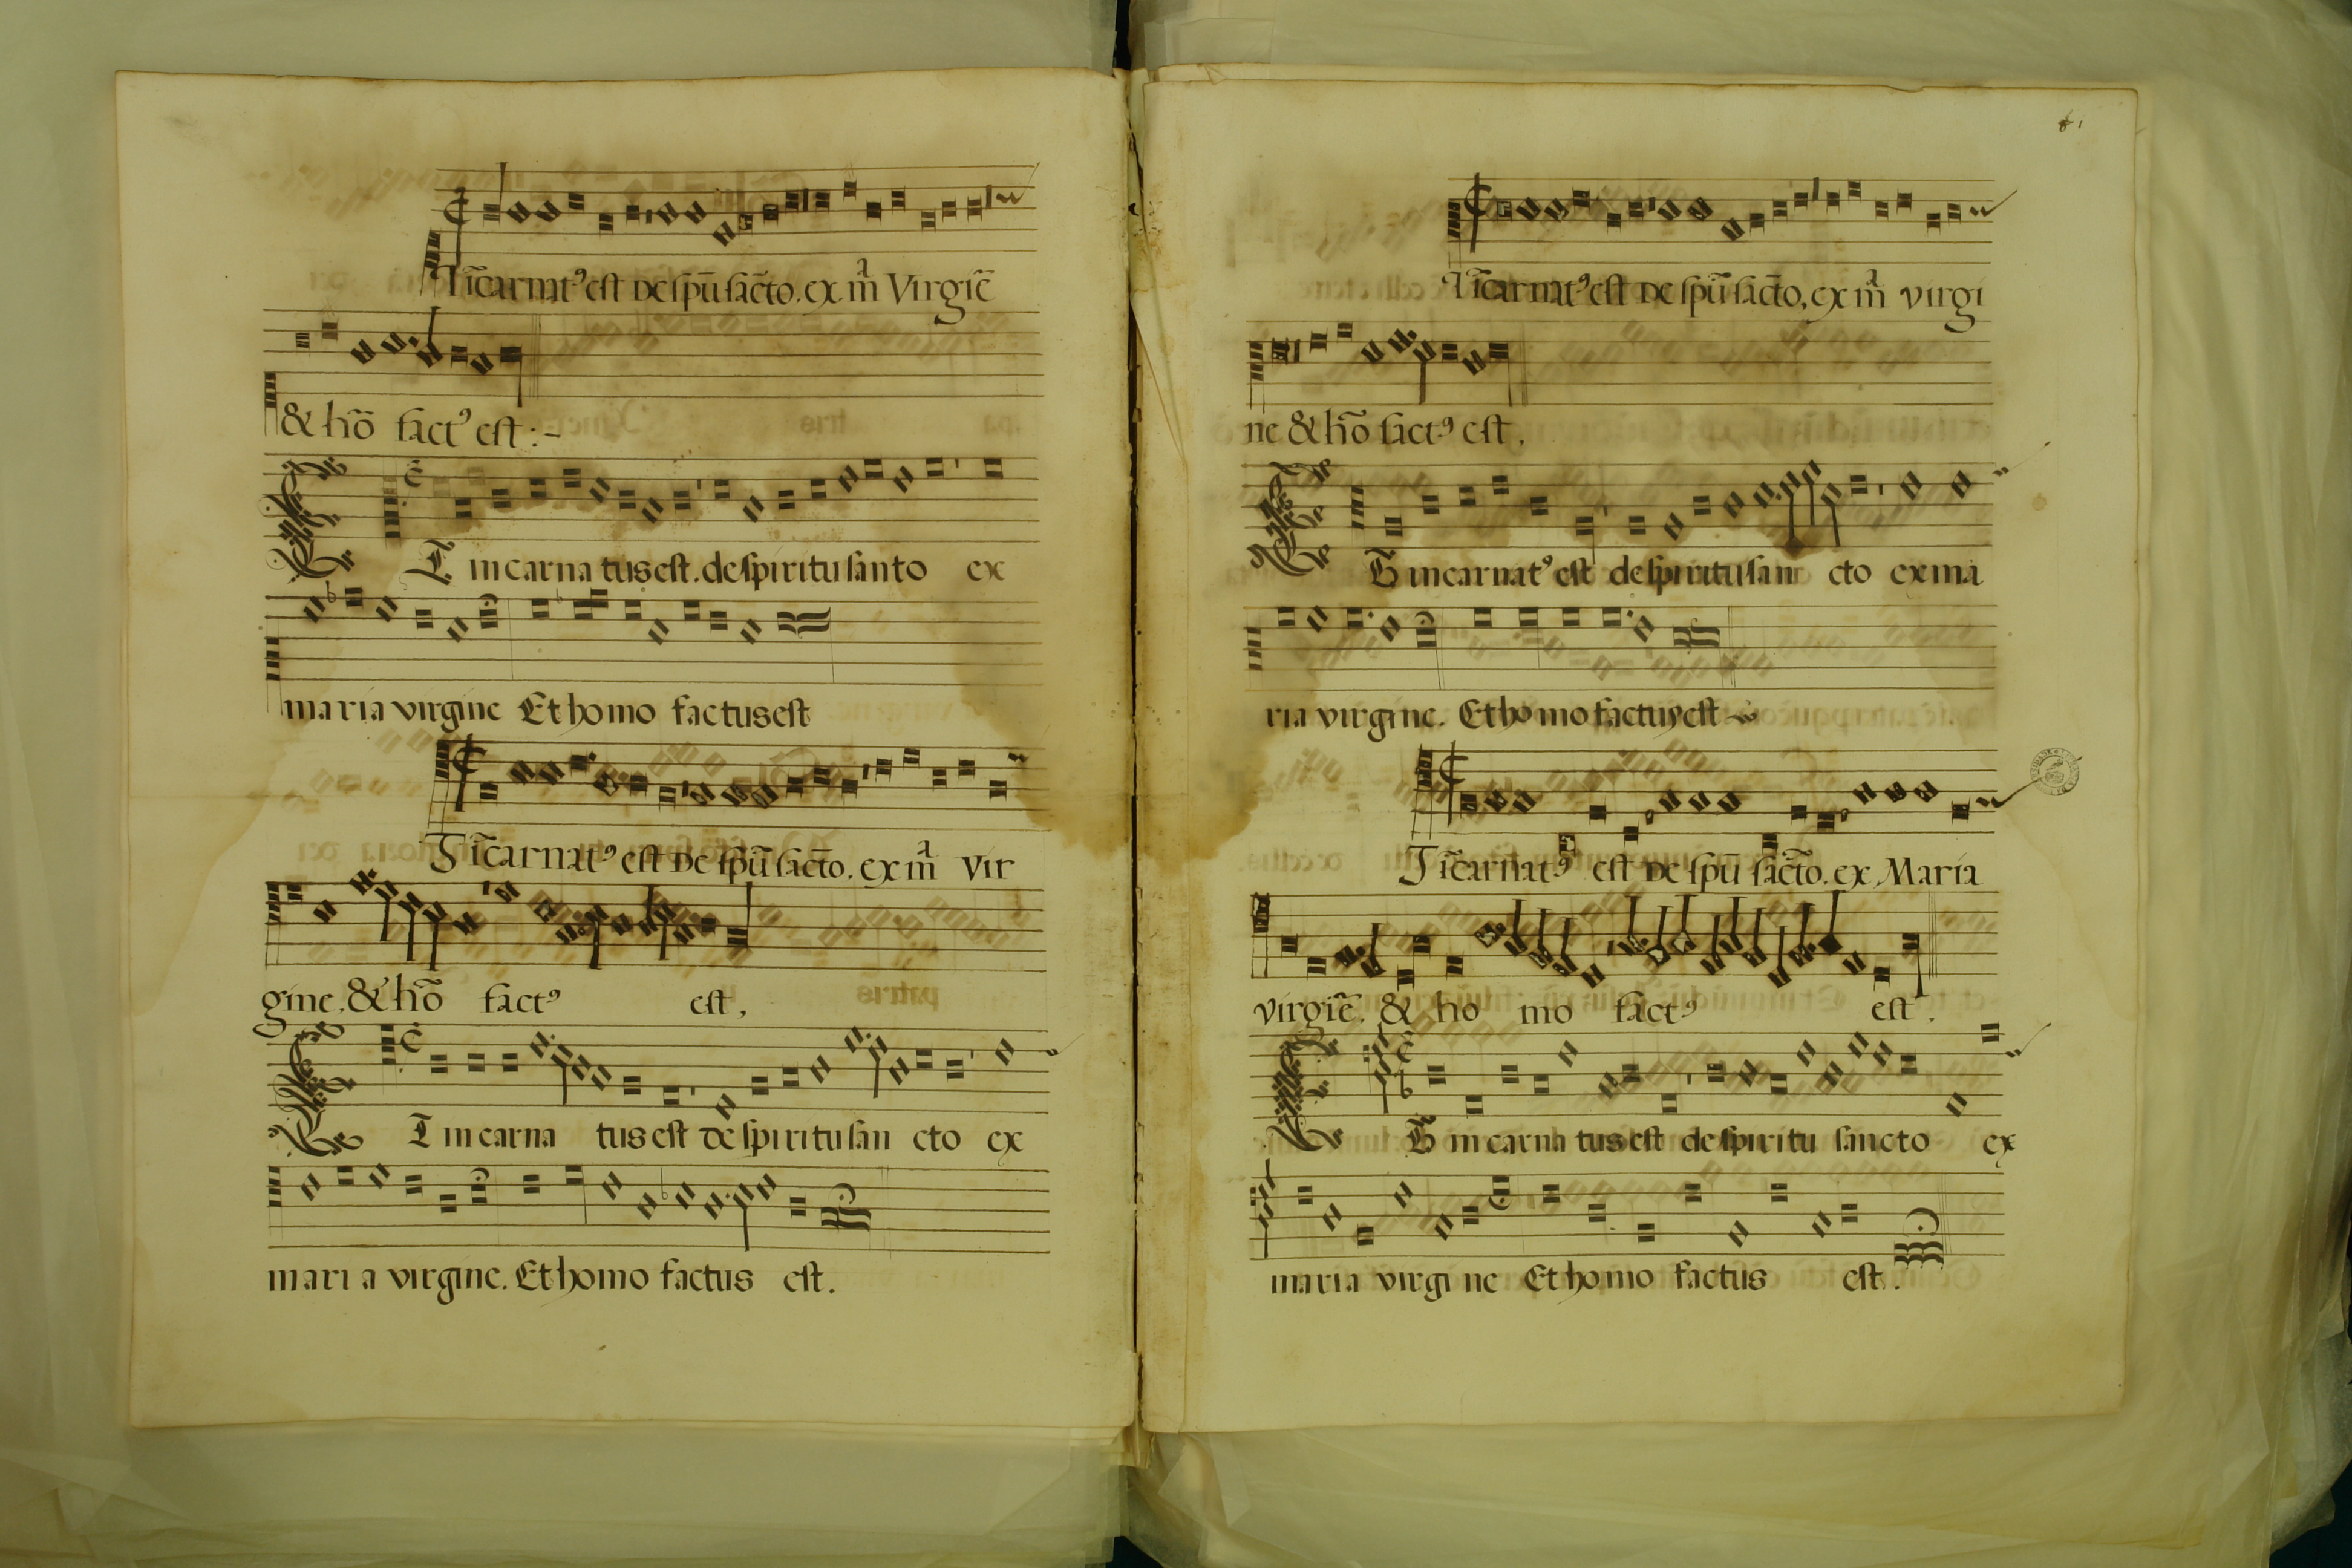 Ĩcarnatꝰ est De spũ sãcto. ex mᵃ̃ Virgiẽ
& hõ factꝰ est :~
Et incarnatus est. de spiritu santo ex
maria virgine Et homo factus est
Ĩcarnatꝰ est De spũ sãcto. ex mᵃ̃ Vir
gine. & hõ factꝰ est,
Et incarna tus est de spiritu san cto ex
mari a virgine. Et homo factus est.
61
Ĩcarnatꝰ est De spũ sãcto, ex mᵃ̃ virgi
ne & hõ factꝰ est,
Et incarnatꝰ est de spiritu san cto ex ma
ria virgine. Et homo factus est
Ĩcarnatꝰ est De spũ sãcto. ex Maria
virgiẽ. & ho mo factꝰ est.
Et incarna tus est de spiritu sancto ex
maria virgi ne Et homo factus est.